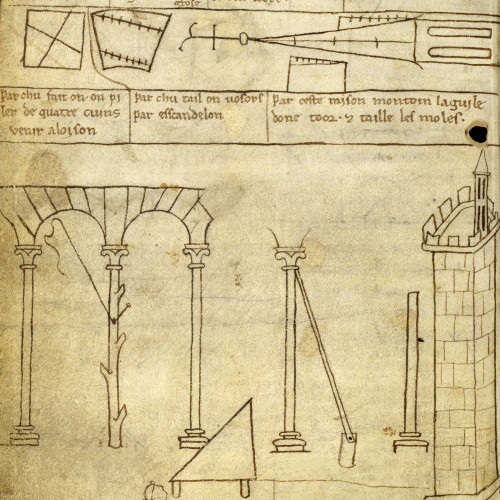 Par chu fait on .on pi
ler de quatre cuins
venir aloison
par chu tail on vosors
par esscandelon.
par ceste raison montom laguile
done toor. ⁊ taille les moles.